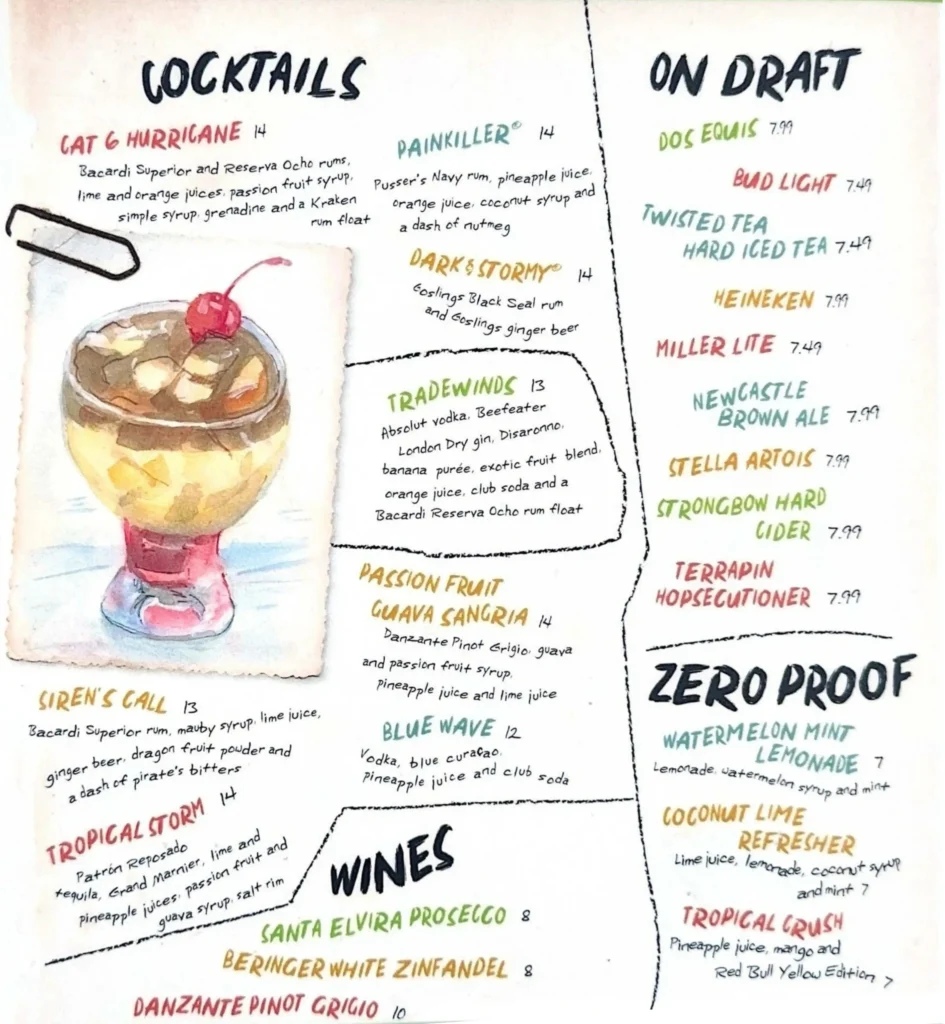 COCKTAILS
CAT 6 HURRICANE 14
Bacardi Superior and Reserva Ocho rums,
lime and orange juices, passion fruit syrup,
simple syrup, grenadine and a Kraken
rum float
PAINKILLER® 14
Pusser's Navy rum, pineapple juice,
orange juice, coconut syrup and
a dash of nutmeg
DARK & STORMY® 14
Goslings Black Seal rum
and Goslings ginger beer
TRADEWINDS 13
Absolut vodka, Beefeater
London Dry gin, Disaronno,
banana purée, exotic fruit blend,
orange juice, club soda and a
Bacardi Reserva Ocho rum float
PASSION FRUIT
GUAVA SANGRIA 14
Danzante Pinot Grigio, guava
and passion fruit syrup,
Pineapple juice and lime juice
BLUE WAVE 12
Vodka, blue curaçao,
Pineapple juice and club soda
SIREN'S CALL 13
Bacardi Superior rum, mauby syrup, lime juice,
ginger beer, dragon fruit powder and
a dash of pirate's bitters
TROPICAL STORM 14
Patrón Reposado
tequila, Grand Marnier, lime and
pineapple juices, passion fruit and
guava syrup, salt rim
WINES
SANTA ELVIRA PROSECCO 8
BERINGER WHITE ZINFANDEL 8
DANZANTE PINOT GRIGIO 10
ON DRAFT
DOS EQUIS 7.99
BUD LIGHT 7.49
TWISTED TEA
HARD ICED TEA 7.49
HEINEKEN 7.99
MILLER LITE 7.49
NEWCASTLE
BROWN ALE 7.99
STELLA ARTOIS 7.99
STRONGBOW HARD
CIDER 7.99
TERRAPIN
HOPSECUTIONER 7.99
ZERO PROOF
WATERMELON MINT
LEMONADE 7
Lemonade, watermelon syrup and mint
COCONUT LIME
REFRESHER
Lime juice, lemonade, coconut syrup
and mint 7
TROPICAL CRUSH
Pineapple juice, mango and
Red Bull Yellow Edition 7